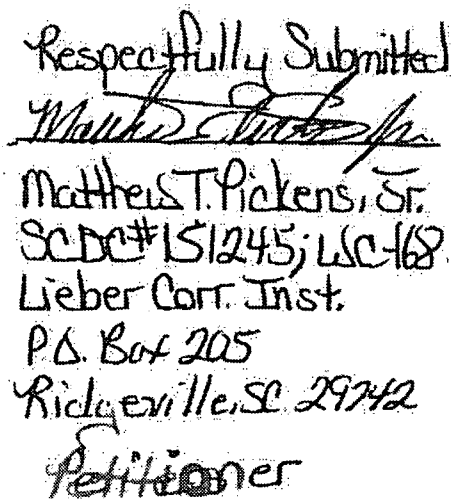 Respectfully Submitted
Matthew T. Pickens, Sr.
SCDC#151245; WC-168
Lieber Corr. Inst.
P.O. Box 205
Ridgeville, SC 29242
Petitioner